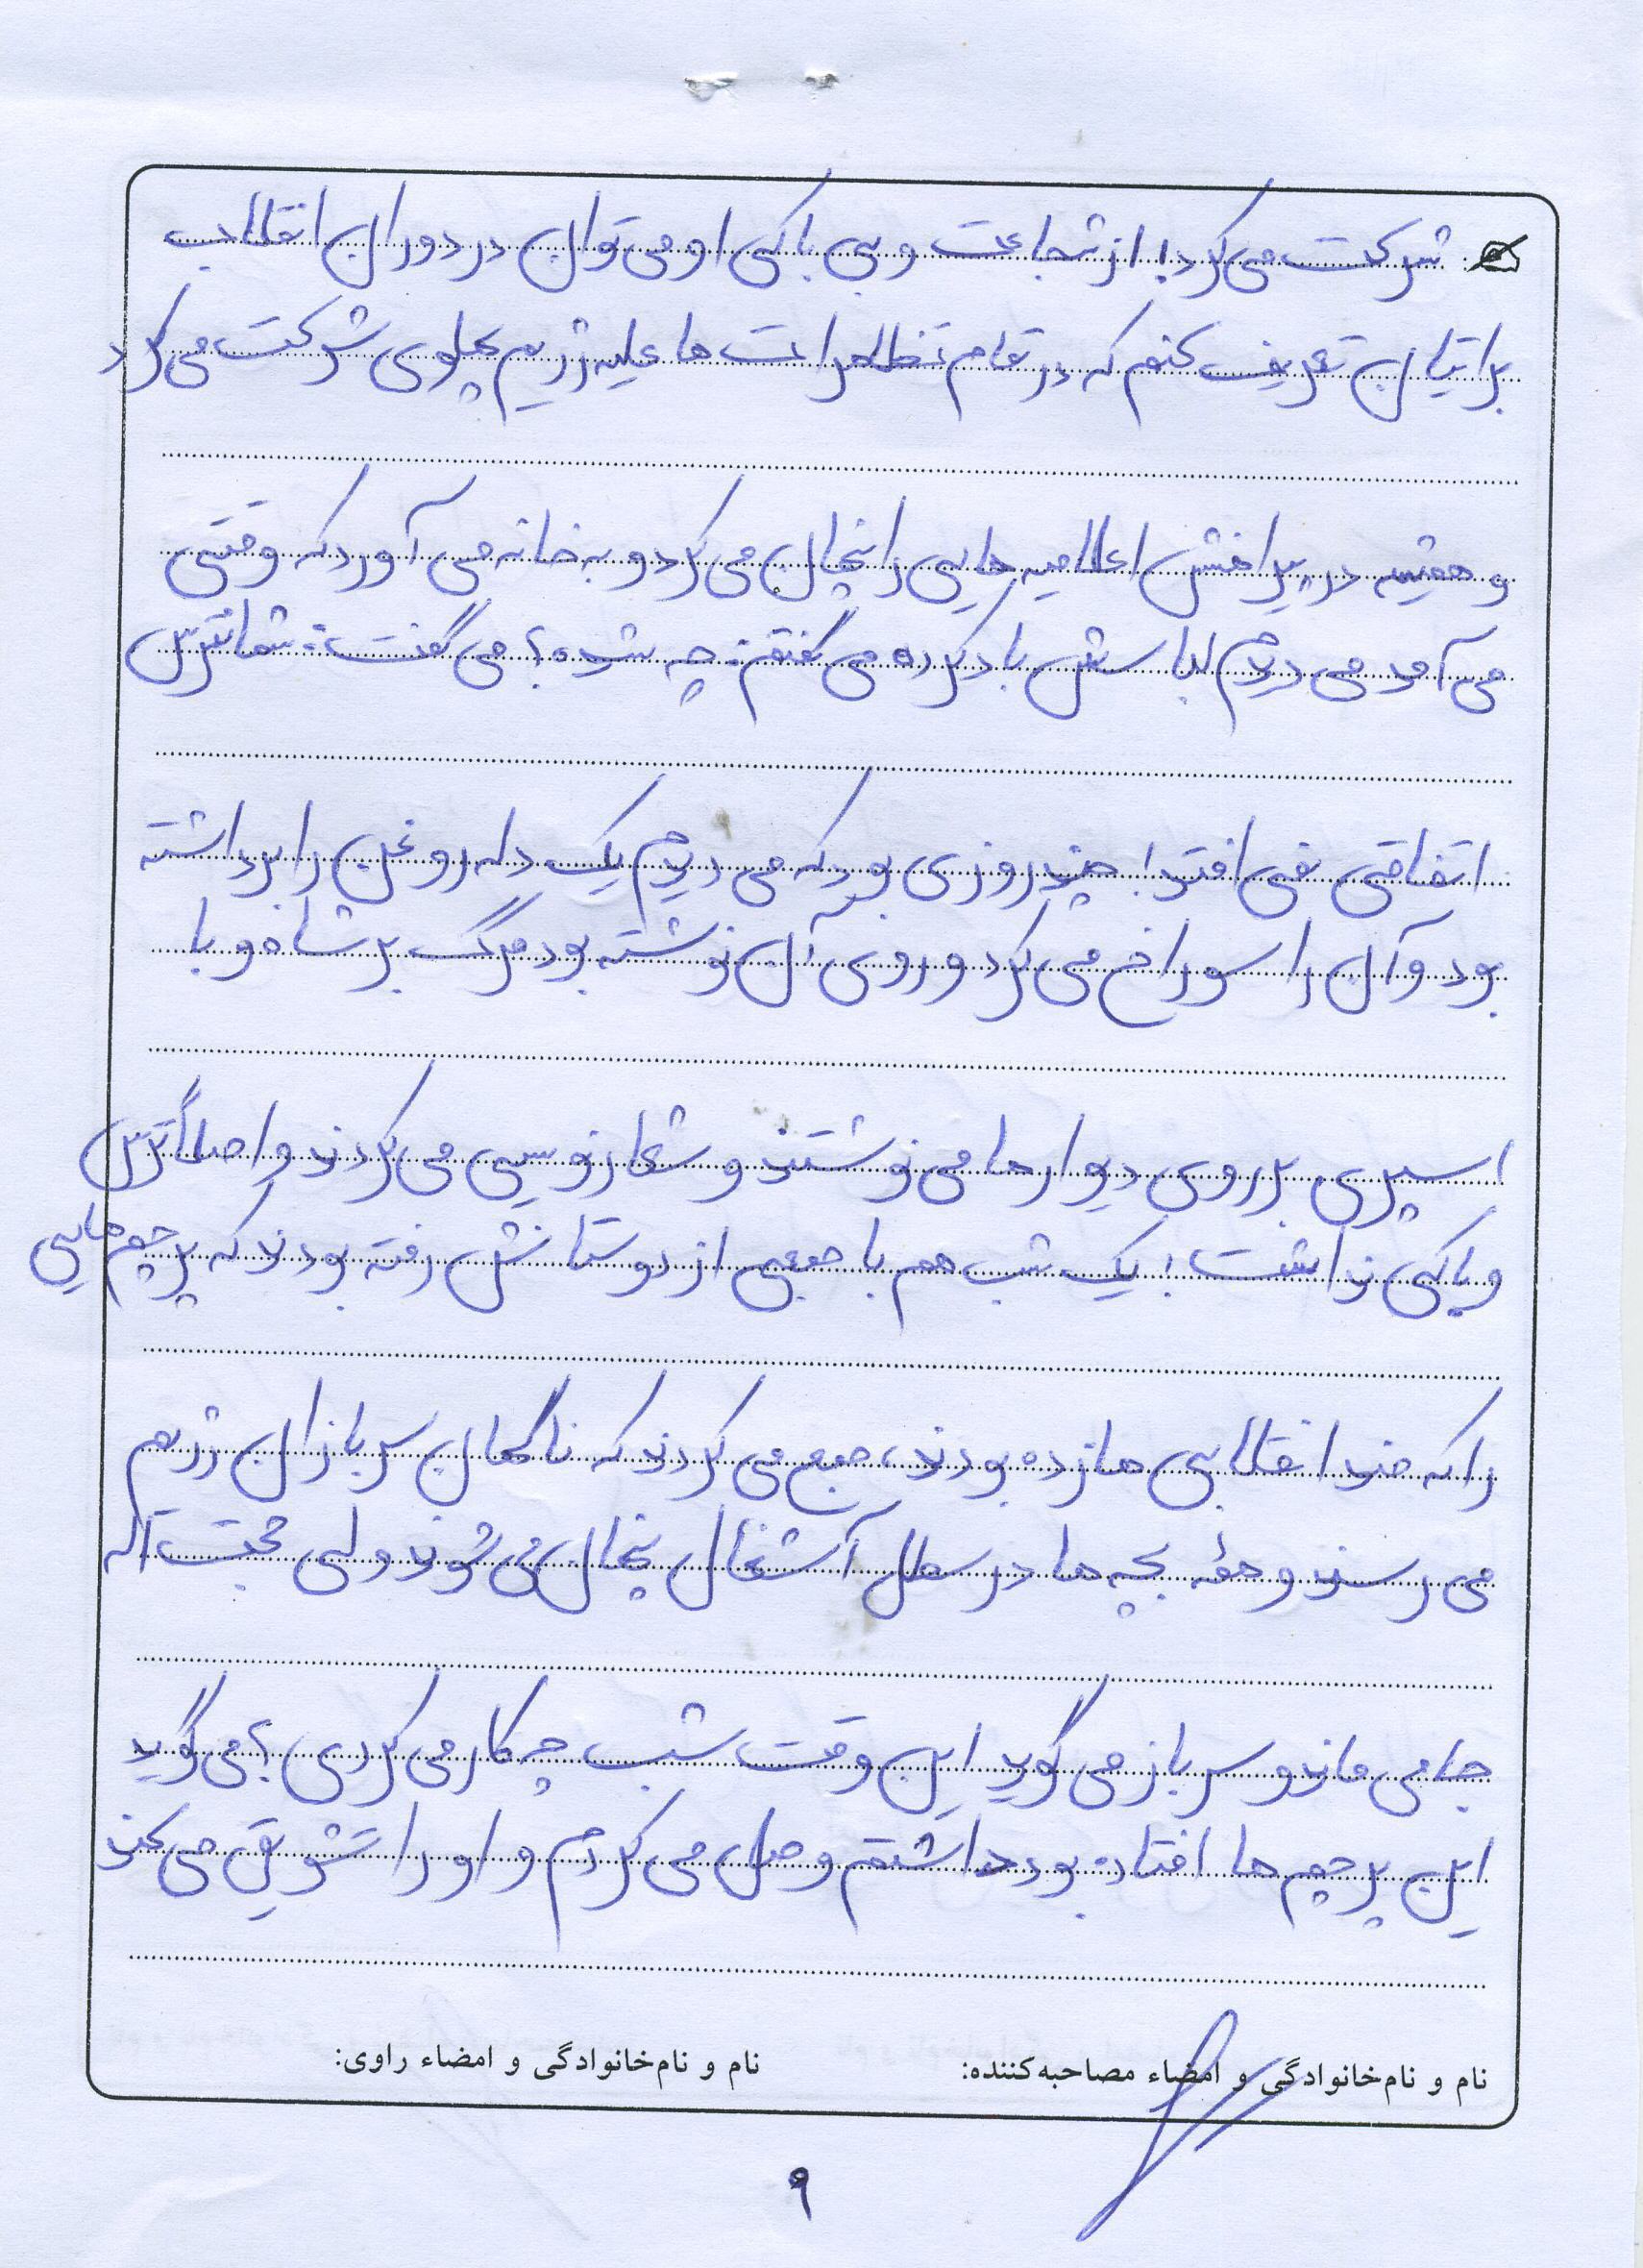 شرکت می‌کرد! از شجاعت و بی باکی او می توان در دوران انقلاب
براتیان تعریف کنم که در تمام تظاهرات ها علیه رژیم پهلوی شرکت می‌کرد
و همیشه در پیراهنش اعلامیه هایی را پنهان می کرد و به خانه می آورد که وقتی
می آمد می دیدم لباسش باد کرده می گفتم: چه شده؟ می گفت: شما نترس
اتفاقی نمی افتد! چند روزی بود که می دیدم یک دله روغن را برداشته
بود و آن را سوراخ می کرد و روی آن نوشته بود مرگ بر شاه و با
اسپری بر روی دیوارها می نوشتند و شعارنویسی می کردند و اصلاً ترس
و باکی نداشت! یک شب هم با جمعی از دوستانش رفته بودند که پرچم هایی
را که ضد انقلابی ها زده بودند، جمع می کردند که ناگهان سربازان رژیم
می رسند و همهٔ بچه ها در سطل آشغال پنهان می شوند ولی حجت اله
جا می ماند و سرباز می گوید این وقت شب چکار می کردی؟ می گوید
این پرچم ها افتاده بود داشتم وصل می کردم و او را تشویق می کند
نام و نام‌خانوادگی و امضاء مصاحبه‌کننده:
نام و نام‌خانوادگی و امضاء راوی:
۹